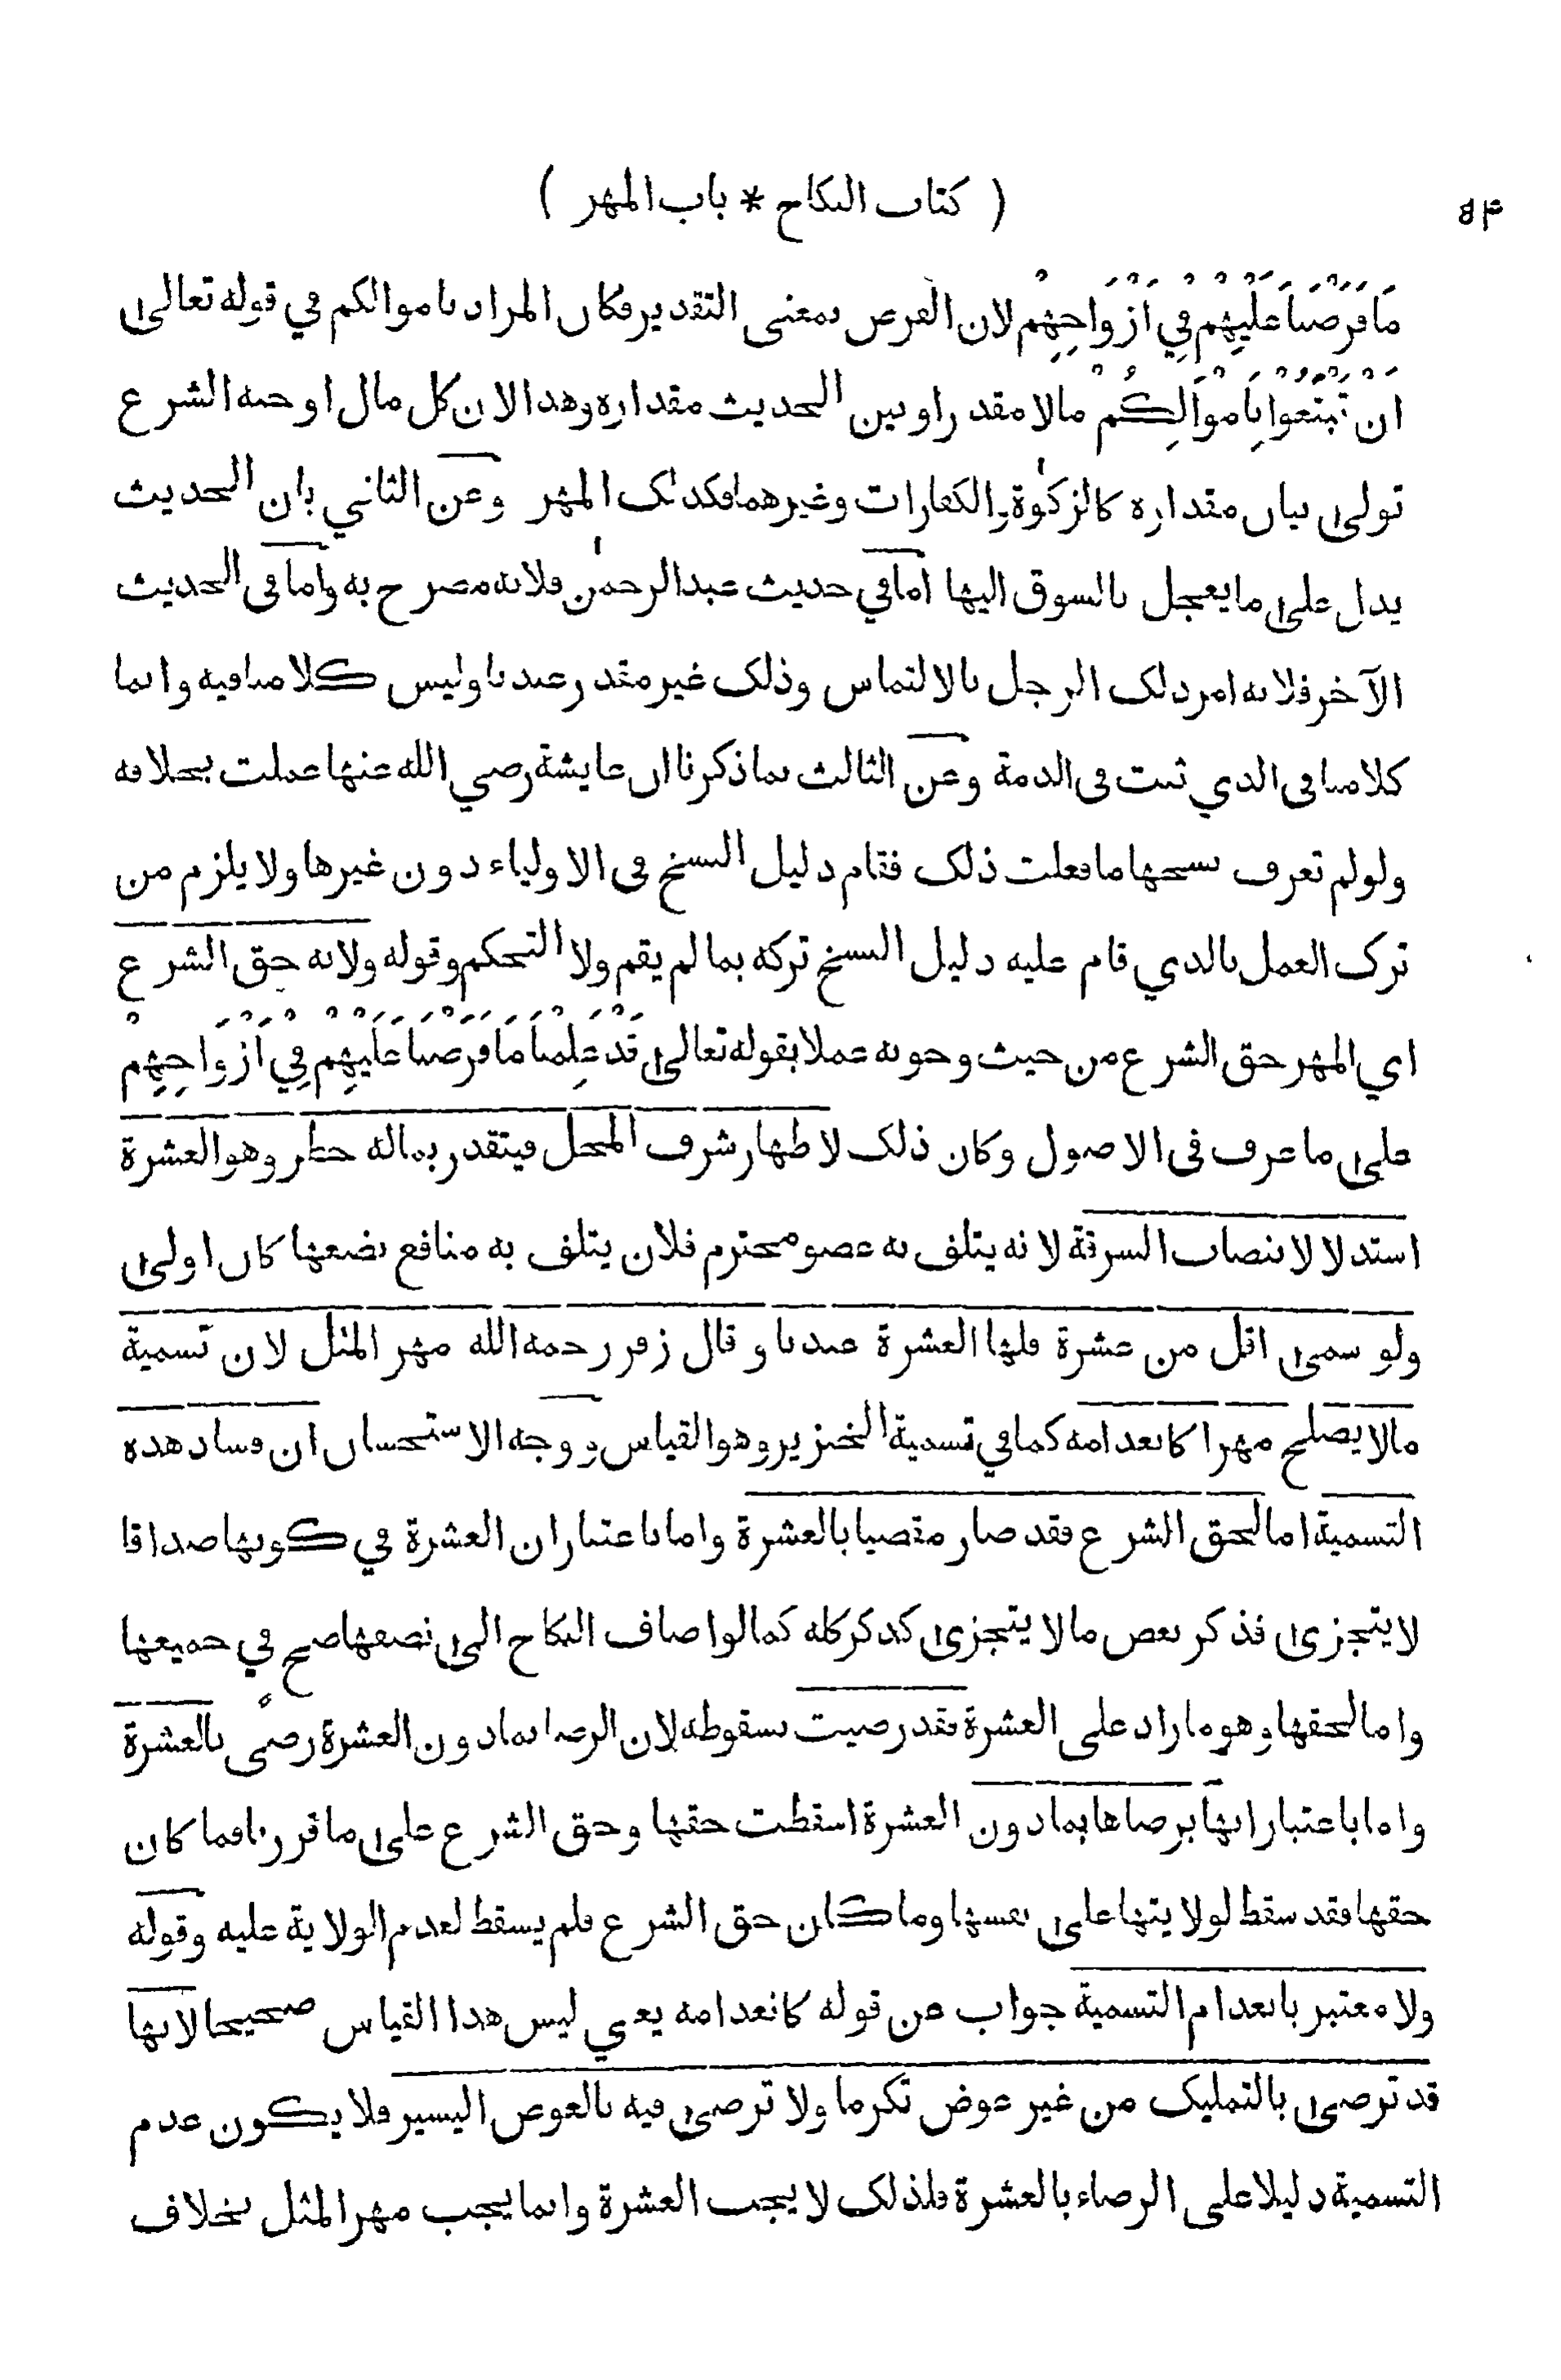 ( كتاب النكاح * باب المهر )
مَا فَرَضْنَا عَلَيْهِمْ فِي اَزْوَاجِهِمْ لان الفرض بمعنى التقدير فكان المراد باموالكم في قوله تعالى
ان تَبْتَغُوا بِاَمْوَالِكُمْ مالا مقدرا وبين الحديث مقداره وهذا لان كل مال اوجبه الشرع
تولى بيان مقداره كالزكوة والكفارات وغيرهما فكذلك المهر وعن الثاني بان الحديث
يدل على ما يعجل بالسوق اليها اما في حديث عبدالرحمن فلانه مصرح به واما في الحديث
الآخر فلانه امر ذلك الرجل بالالتماس وذلك غير مقدر عندنا وليس كلامنا فيه وانما
كلامنا في الذي ثبت في الذمة وعن الثالث بما ذكرنا ان عايشة رضي الله عنها عملت بخلافه
ولو لم تعرف نسخها ما فعلت ذلك فقام دليل النسخ في الاولياء دون غيرها ولا يلزم من
ترك العمل بالذي قام عليه دليل النسخ تركه بما لم يقم ولا التحكم وقوله ولانه حق الشرع
اي المهر حق الشرع من حيث وجوبه عملا بقوله تعالى قَدْ عَلِمْنَا مَا فَرَضْنَا عَلَيْهِمْ فِي اَزْوَاجِهِمْ
على ما عرف في الاصول وكان ذلك لاظهار شرف المحل فيتقدر بماله خطر وهو العشرة
استدلالا بنصاب السرقة لانه يتلف به عضو محترم فلان يتلف به منافع بضعها كان اولى
ولو سمى اقل من عشرة فلها العشرة عندنا وقال زفر رحمه الله مهر المثل لان تسمية
مالا يصلح مهرا كانعدامه كما في تسمية الخنزير وهو القياس ووجه الاستحسان ان فساد هذه
التسمية اما لحق الشرع فقد صار مقضيا بالعشرة واما باعتبار ان العشرة في كونها صداقا
لا يتجزى فذكر بعض مالا يتجزى كذكر كله كما لو اضاف النكاح الى نصفها صح في جميعها
واما لحقها وهو ما زاد على العشرة فقد رضيت بسقوطه لان الرضا بما دون العشرة رضى بالعشرة
واما باعتبار انها برضاها بما دون العشرة اسقطت حقها وحق الشرع على ما قررنا فما كان
حقها فقد سقط لولايتها على نفسها وما كان حق الشرع فلم يسقط لعدم الولاية عليه وقوله
ولا معتبر بانعدام التسمية جواب عن قوله كانعدامه يعني ليس هذا القياس صحيحا لانها
قد ترضى بالتمليك من غير عوض تكرما ولا ترضى فيه بالعوض اليسير فلا يكون عدم
التسمية دليلا على الرضاء بالعشرة فلذلك لا يجب العشرة وانما يجب مهر المثل بخلاف